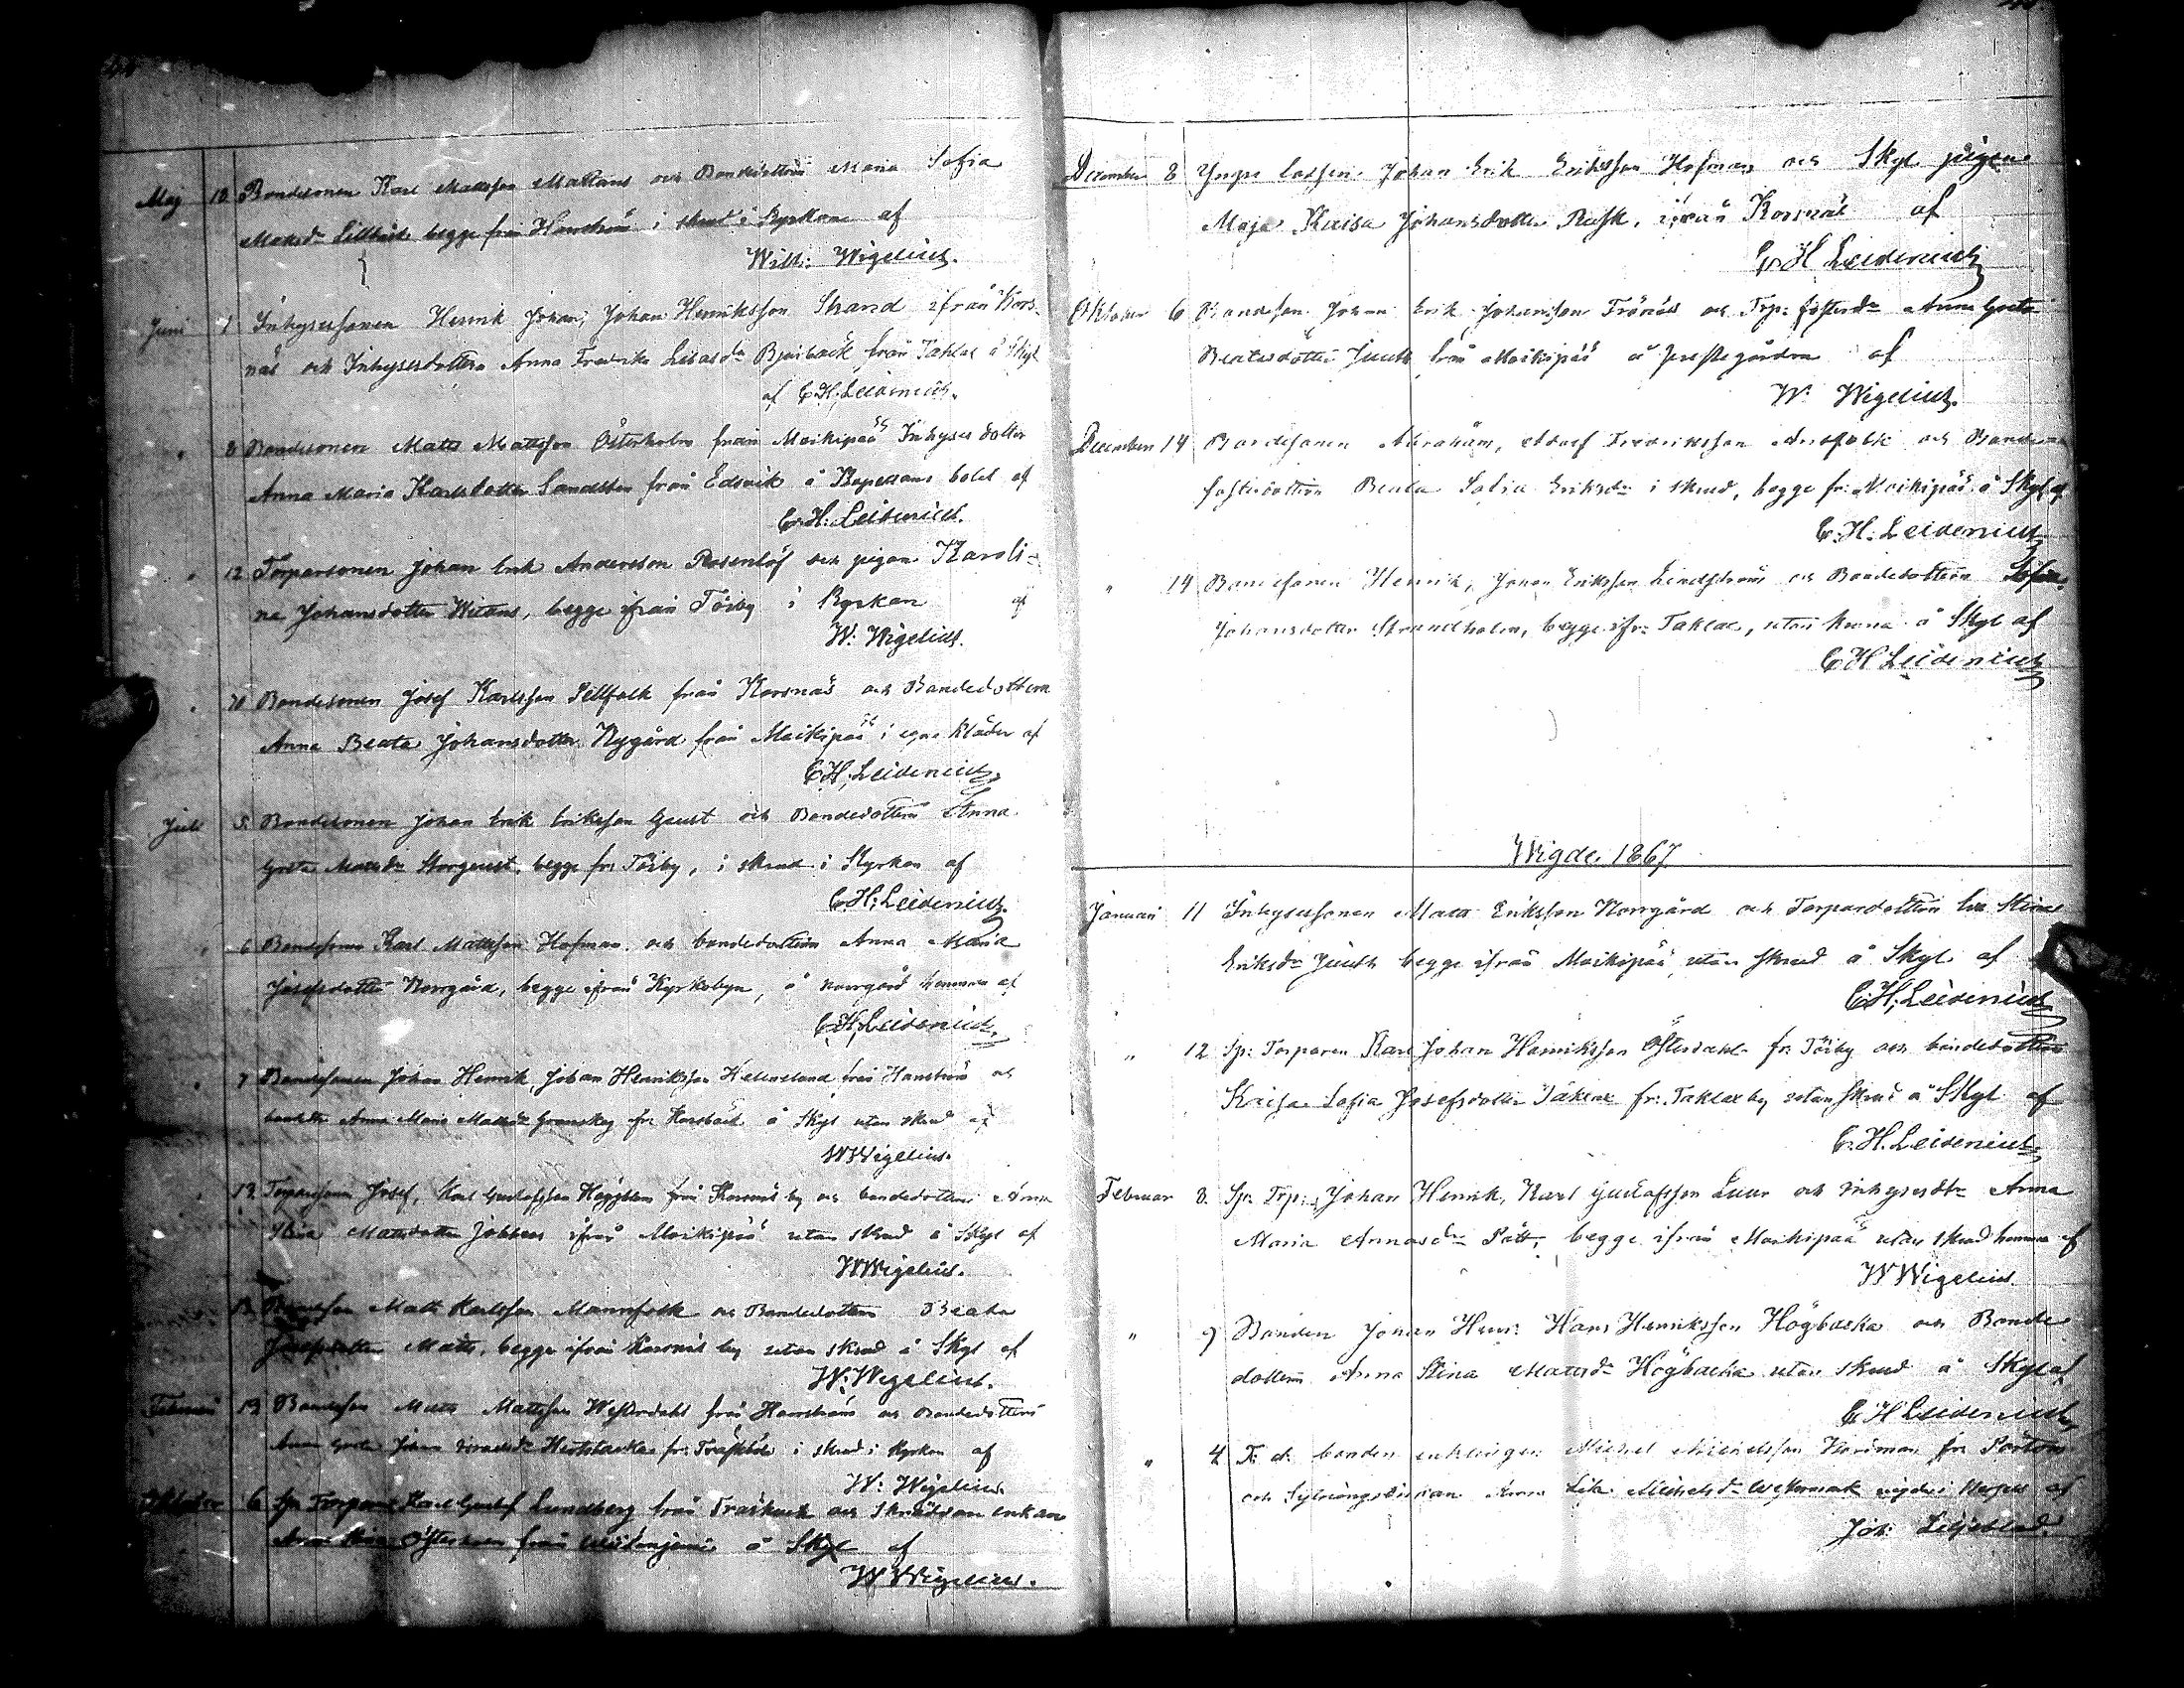 Maj 10 Bondesonen Karl Mattsson Mattans och Bondedottren Maria Sofia
Matsdr Lillbäck begge från Harrström i skrud i Kyrkan af
Wilh: Wigelius.
Juni 1 Inhysessonen Henrik Johan, Johan Henriksson Strand ifrån Kors-
näs och Inhysesdottren Anna Fredrika Björkback från Taklax å Skyl
af C. H. Leidenius.
" 8 Bondesonen Matts Mattsson Österholm från Moikipää Inhyses dotter
Anna Maria Karlsdotter Sandsten från Edsvik å Kapellans bolet af
C. H. Leidenius.
" 12 Torparsonen Johan Erik Andersson Rosenlöf och pigan Karoli-
na Johansdotter Witans, begge ifrån Töjby i Kyrkan af
W. Wigelius.
" 20 Bondesonen Josef Karlsson Sillfolk från Korsnäs och Bondedottern
Anna Beata Johansdotter Nygård från Moikipää i egna kläder af
C. H. Leidenius
Juli 5 Bondesonen Johan Erik Eriksson Geust och Bondedottren Anna
Greta Matsdr Storgeust, begge fr: Töjby, i skrud i Kyrkan af
C. H. Leidenius.
" 6 Bondesonen Karl Mattsson Hofman och bondedottren Anna Maria
Josefsdotter Norrgård, begge ifrån Kyrkobyn, å Norrgård hemman af
C. H. Leidenius.
" 7 Bondesonen Johan Henrik, Johan Henriksson från Harrström och
Anna Maria Matsdr Granskog fr: Korsbäck å Skyl utan skrud af
W Wigelius.
" 13 Torparsonen Josef, Karl Gustafsson Häggblom från Korsnäs by och bondedottren Anna
Stina Mattsdotter ifrån Moikipää utan skrud å Skyl af
W Wigelius.
13 Bondeson Matts Karlsson Mannfolk och Bondedottren Beata
Josefsdotter Matts, begge ifrån Korsnäs by utan skrud å Skyl af
W: Wigelius.
13 Bondeson Matts Mattsson Westerdahl från Harrström och Bondedottren
Anna Greta Johan fr: Träskböle i skrud i Kyrkan af
W: Wigelius
Oktober 6 Sp: Torparen Karl Gustaf Lundberg från och skräddare enkan
Anna från å Skyl af
W Wigelius.
December 8 Yngre lotsen Johan Erik Eriksson Hofman och Skyl pigan
Maja Kaisa Johansdotter Rusk, ifrån Korsnäs af
C. H Leidenius
Oktober 6 Bondeson Johan Erik Johansson Trånäs och Trp: fosterdr Anna Greta
Beatasdotter Juuth från Moikipää å prestgården af
W. Wigelius.
December 14 Bondesonen Abraham, Adolf Fredriksson och Bonde
fosterdottren Beata Sofia Eriksdr i skrud, begge fr: Moikipää å Skyl af
C. H. Leidenius
" 14 Bondesonen Henrik, Johan Eriksson Lindström och Bondedottren Sofia
Johansdotter Strandholm, begge ifr: Taklax, utan krona å Skyl af
C H Leidenius
Wigde. 1867
Januari 11 Inhysessonen Matts Eriksson Norrgård och Torpardottren Eva Stina
Eriksdr Juuth begge ifrån Moikipää utan skrud å Skyl af
C. H. Leidenius
" 12 Sp: Torparen Karl Johan Henriksson Österdahl fr: Töjby och bondedottren
Kaisa Sofia Josefsdotter Taklax fr: Taklax by utan skrud å Skyl af
C. H. Leidenius
Februar 8. Sp: Trp: Johan Henrik, Karl Gustafsson Luur och Inhysesdtr Anna
Maria Annasdr Pått, begge ifrån Moikipää utan skrud hemma af
W Wigelius.
" 9 Bonden Johan Henr: Hans Henriksson Högbacka och Bonde
dottren Anna Stina Matsdr Högbacka utan skrud å Skyl af
C H Leidenius
" 4 F. d. bonden enklingen Michel Michelsson Nordman fr: Pörtom
och Sytningsenkan Anna Lisa Michelsdr Westermark vigde i af
Joh: Liljeblad.